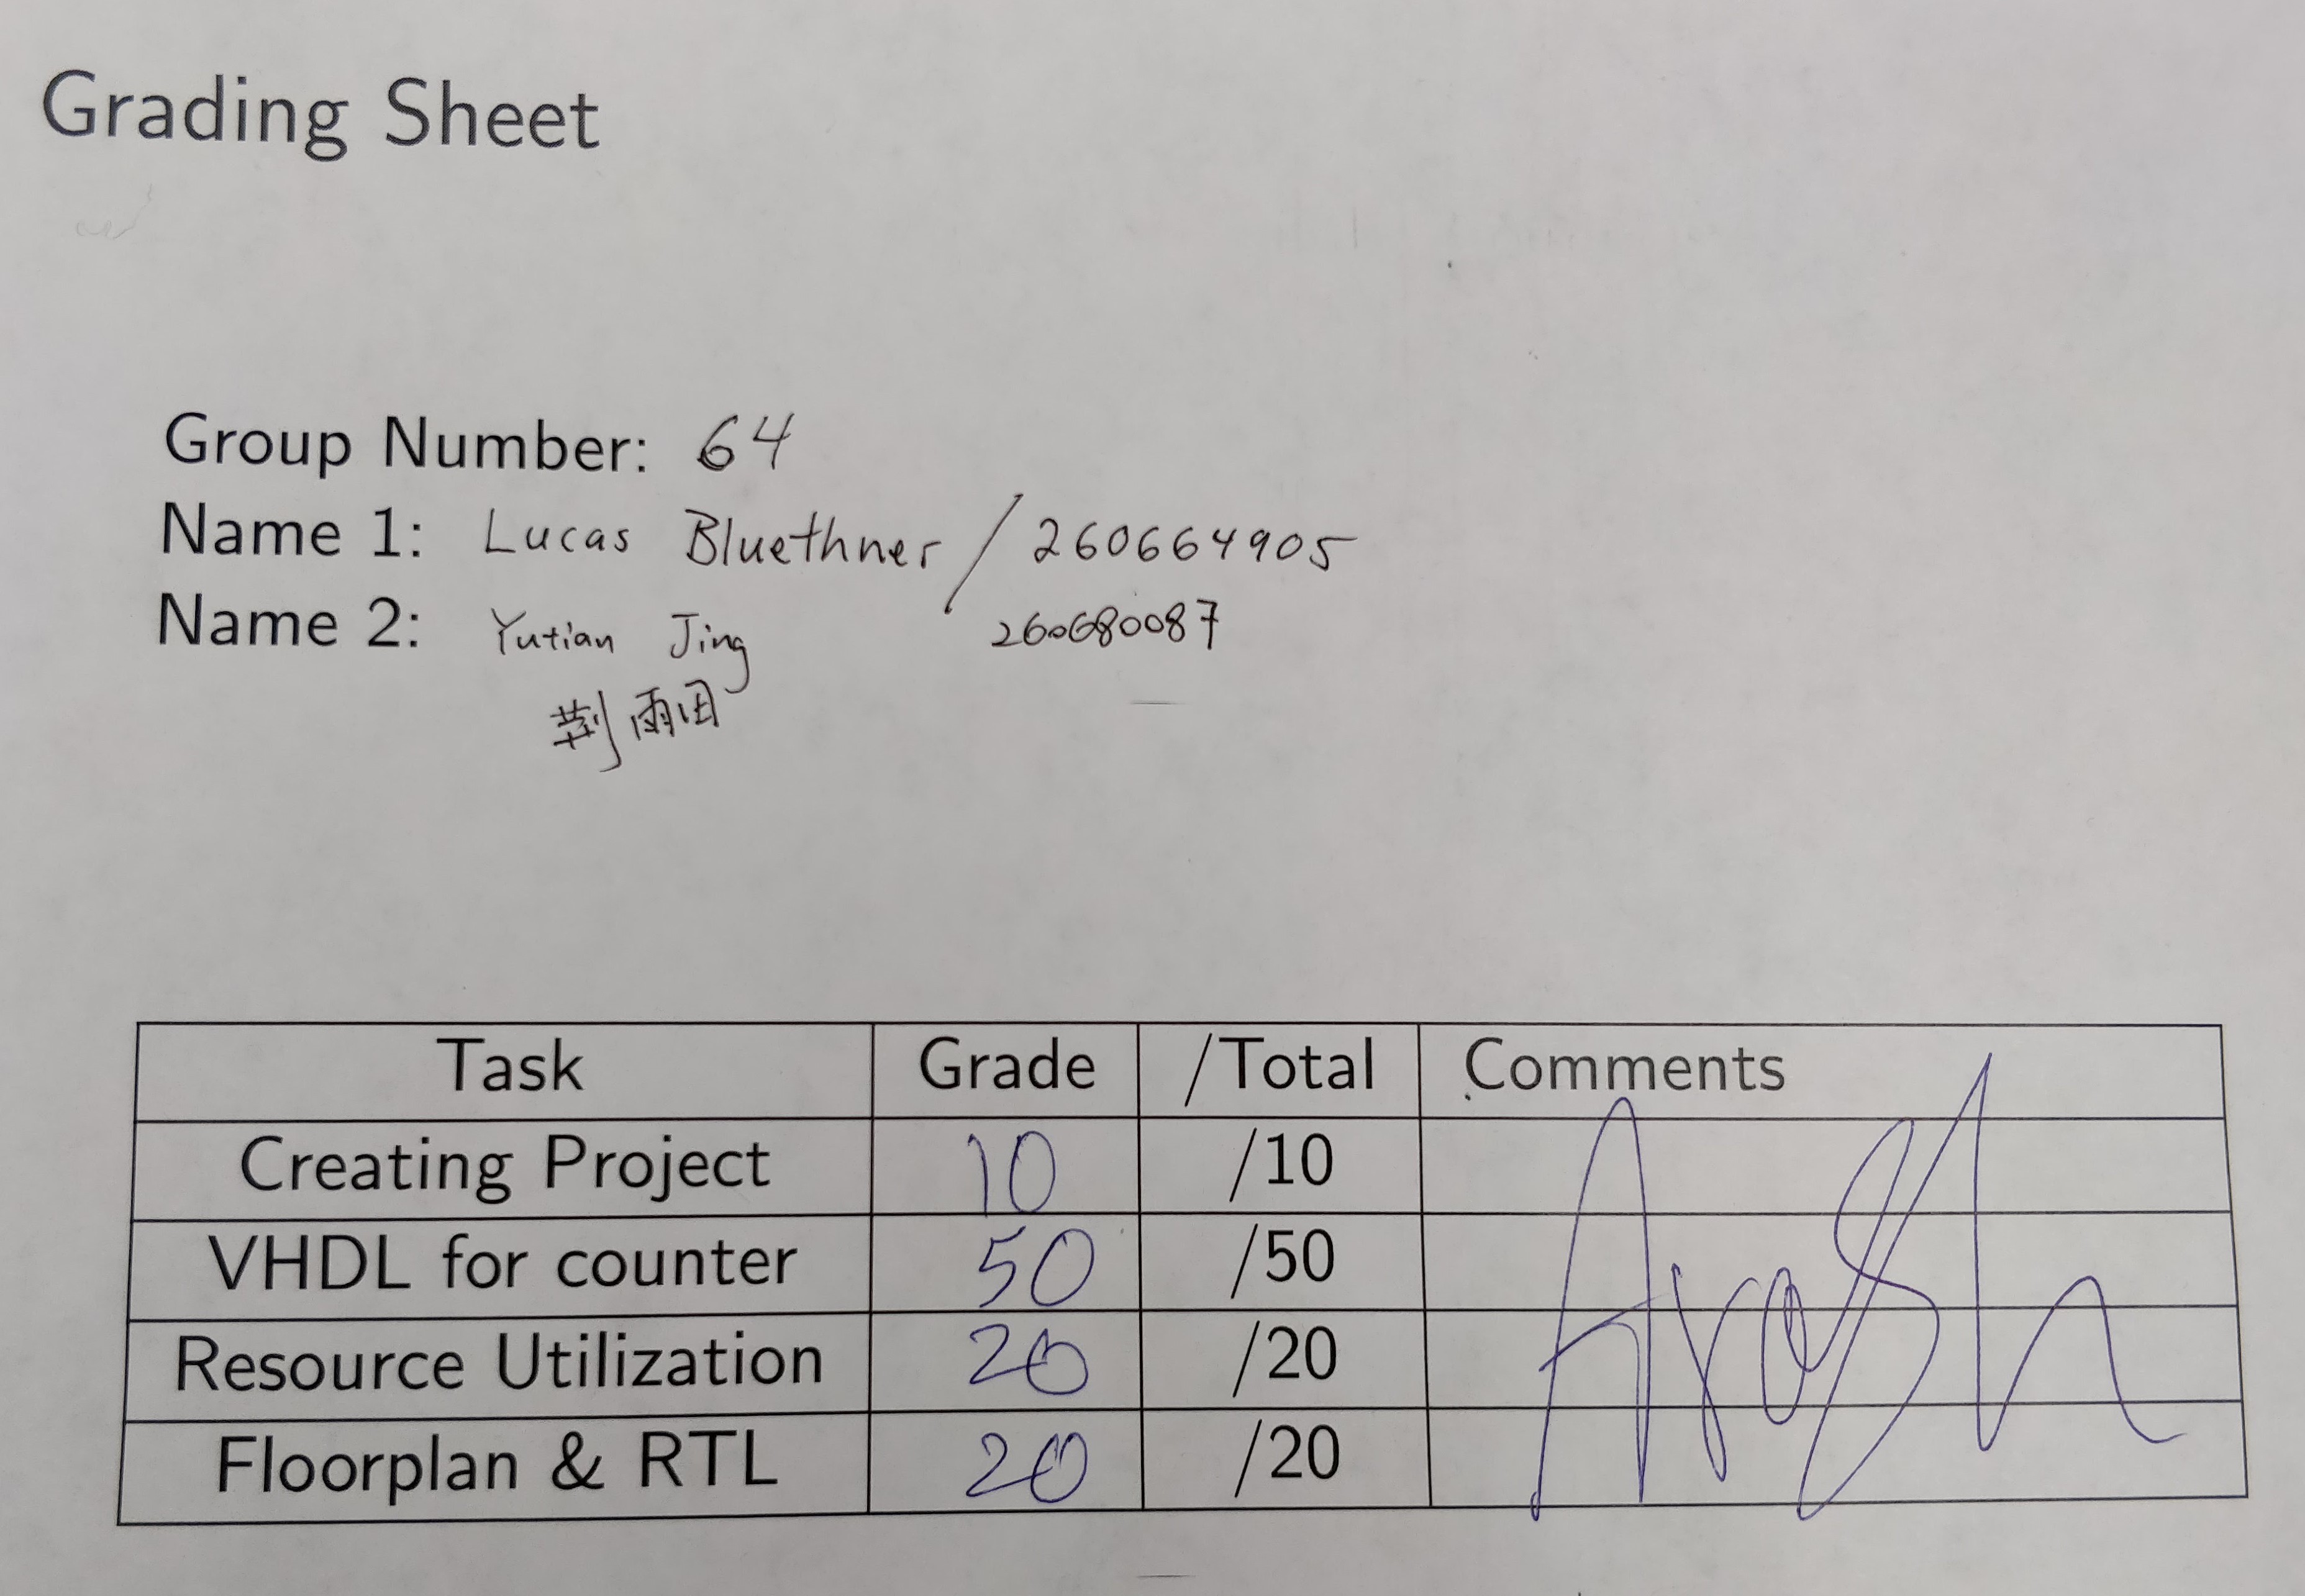 Grading Sheet
Group Number: 64
Name 1: Lucas Bluethner / 260664905
Name 2: Yutian Jing 260680087
荆雨田
Task Grade /Total Comments
Creating Project 10 /10
VHDL for counter 50 /50
Resource Utilization 20 /20
Floorplan & RTL 20 /20
Arash